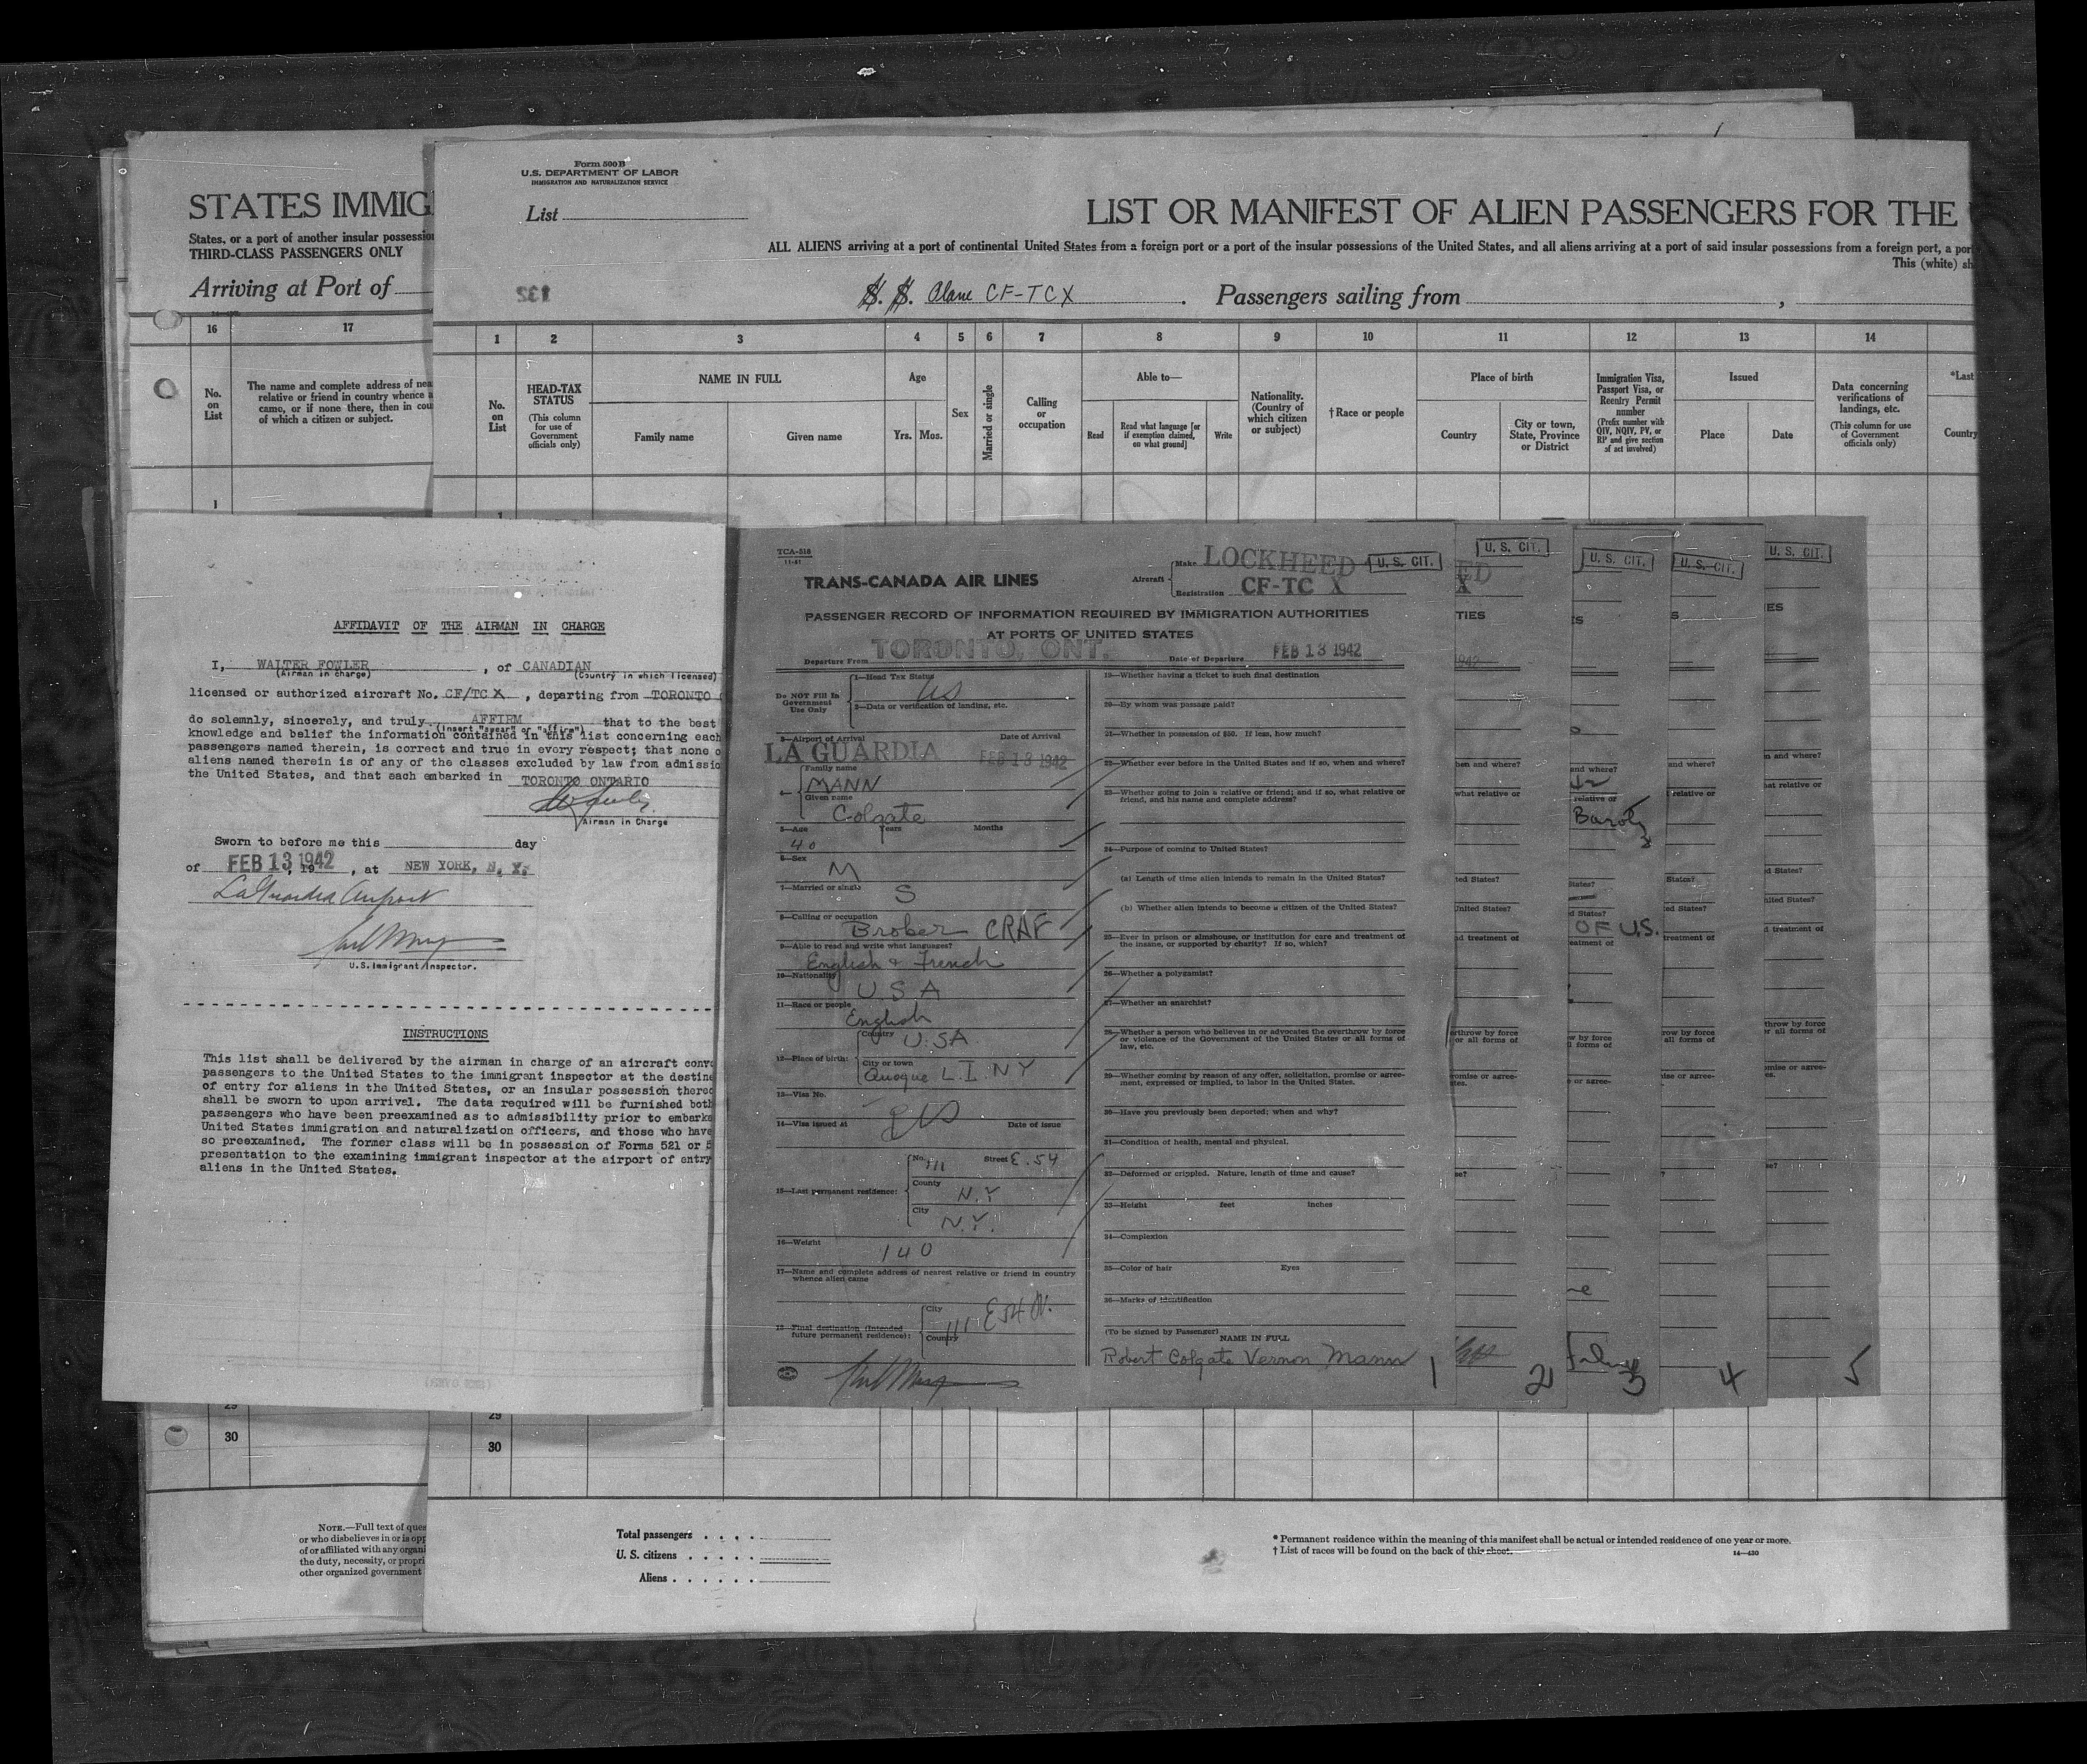 STATES IMMIG
States, or a port of another insular possession
THIRD-CLASS PASSENGERS ONLY
Arriving at Port of
16
17
No. on List
The name and complete address of nea
relative or friend in country whence a
came, or if none there, then in cou
of which a citizen or subject.
1
Form 500B
U.S. DEPARTMENT OF LABOR
IMMIGRATION AND NATURALIZATION SERVICE
List
LIST OR MANIFEST OF ALIEN PASSENGERS FOR THE
ALL ALIENS arriving at a port of continental United States from a foreign port or a port of the insular possessions of the United States, and all aliens arriving at a port of said insular possessions from a foreign port, a por
This (white) sh
132
S. S. Plane CF-TCX. Passengers sailing from ,
1 2 3 4 5 6 7 8 9 10 11 12 13 14
No. on List
HEAD-TAX STATUS
(This column for use of Government officials only)
NAME IN FULL
Family name
Given name
Age
Yrs. Mos.
Sex
Married or single
Calling or occupation
Able to—
Read
Read what language [or if exemption claimed, on what ground]
Write
Nationality. (Country of which citizen or subject)
†Race or people
Place of birth
Country
City or town, State, Province or District
Immigration Visa, Passport Visa, or Reentry Permit number
(Prefix number with QIV, NQIV, PV, or RP and give section of act involved)
Issued
Place
Date
Data concerning verifications of landings, etc.
(This column for use of Government officials only)
*Last
Country
AFFIDAVIT OF THE AIRMAN IN CHARGE
I, WALTER FOWLER, of CANADIAN
(Airman in charge) (Country in which licensed)
licensed or authorized aircraft No. CF/TC X, departing from TORONTO
do solemnly, sincerely, and truly AFFIRM that to the best
(Insert "swear" or "affirm")
knowledge and belief the information contained in this list concerning each
passengers named therein, is correct and true in every respect; that none o
aliens named therein is of any of the classes excluded by law from admissio
the United States, and that each embarked in TORONTO ONTARIO
Airman in Charge
Sworn to before me this day
of FEB 13 1942, 19 , at NEW YORK, N. Y.
LaGuardia Airport
U.S.Immigrant Inspector.
INSTRUCTIONS
This list shall be delivered by the airman in charge of an aircraft conve
passengers to the United States to the immigrant inspector at the destine
of entry for aliens in the United States, or an insular possession thereo
shall be sworn to upon arrival. The data required will be furnished both
passengers who have been preexamined as to admissibility prior to embarka
United States immigration and naturalization officers, and those who have
so preexamined. The former class will be in possession of Forms 521 or 5
presentation to the examining immigrant inspector at the airport of entry
aliens in the United States.
TCA-518
11-41
TRANS-CANADA AIR LINES
Aircraft
Make LOCKHEED
Registration CF-TC X
U. S. CIT.
PASSENGER RECORD OF INFORMATION REQUIRED BY IMMIGRATION AUTHORITIES
AT PORTS OF UNITED STATES
Departure From TORONTO, ONT. Date of Departure FEB 13 1942
Do NOT Fill In Government Use Only
1—Head Tax Status
US
2—Data or verification of landing, etc.
3—Airport of Arrival Date of Arrival
LA GUARDIA FEB 13 1942
4—
Family name
MANN
Given name
Colgate
5—Age Years Months
40
6—Sex
M
7—Married or single
S
8—Calling or occupation
Brober CRAF
9—Able to read and write what languages?
English & French
10—Nationality
U S A
11—Race or people
English
12—Place of birth:
Country U.S.A.
City or town
Quogue L. I. N Y
13—Visa No.
14—Visa issued at Date of issue
15—Last permanent residence:
No. 111 Street E. 54
County N.Y
City N.Y.
16—Weight
140
17—Name and complete address of nearest relative or friend in country
whence alien came
18—Final destination (Intended
future permanent residence):
City
Country
111 E 54
19—Whether having a ticket to such final destination
20—By whom was passage paid?
21—Whether in possession of $50. If less, how much?
22—Whether ever before in the United States and if so, when and where?
23—Whether going to join a relative or friend; and if so, what relative or
friend, and his name and complete address?
24—Purpose of coming to United States?
(a) Length of time alien intends to remain in the United States?
(b) Whether alien intends to become a citizen of the United States?
25—Ever in prison or almshouse, or institution for care and treatment of
the insane, or supported by charity? If so, which?
26—Whether a polygamist?
27—Whether an anarchist?
28—Whether a person who believes in or advocates the overthrow by force
or violence of the Government of the United States or all forms of
law, etc.
29—Whether coming by reason of any offer, solicitation, promise or agree-
ment, expressed or implied, to labor in the United States.
30—Have you previously been deported; when and why?
31—Condition of health, mental and physical.
32—Deformed or crippled. Nature, length of time and cause?
33—Height feet inches
34—Complexion
35—Color of hair Eyes
36—Marks of identification
(To be signed by Passenger)
NAME IN FULL
Robert Colgate Vernon Mann
1
U. S. CIT.
ED
X
TIES
1942
hen and where?
what relative or
ted States?
United States?
nd treatment of
erthrow by force
or all forms of
romise or agree-
tes.
se?
2
U. S. CIT.
and where?
relative or
States?
d States?
OF U.S.
eatment of
w by force
l forms of
or agree-
3
U. S. CIT.
S
and where?
relative or
States?
ed States?
treatment of
row by force
all forms of
ise or agree-
?
4
U. S. CIT.
ES
n and where?
hat relative or
d States?
nited States?
d treatment of
throw by force
r all forms of
omise or agree-
es.
se?
5
29
30
29
30
NOTE.—Full text of ques
or who disbelieves in or is opp
of or affiliated with any organi
the duty, necessity, or propri
other organized government
Total passengers . . . .
U. S. citizens . . . . .
Aliens . . . . . .
* Permanent residence within the meaning of this manifest shall be actual or intended residence of one year or more.
† List of races will be found on the back of this sheet.
14—430